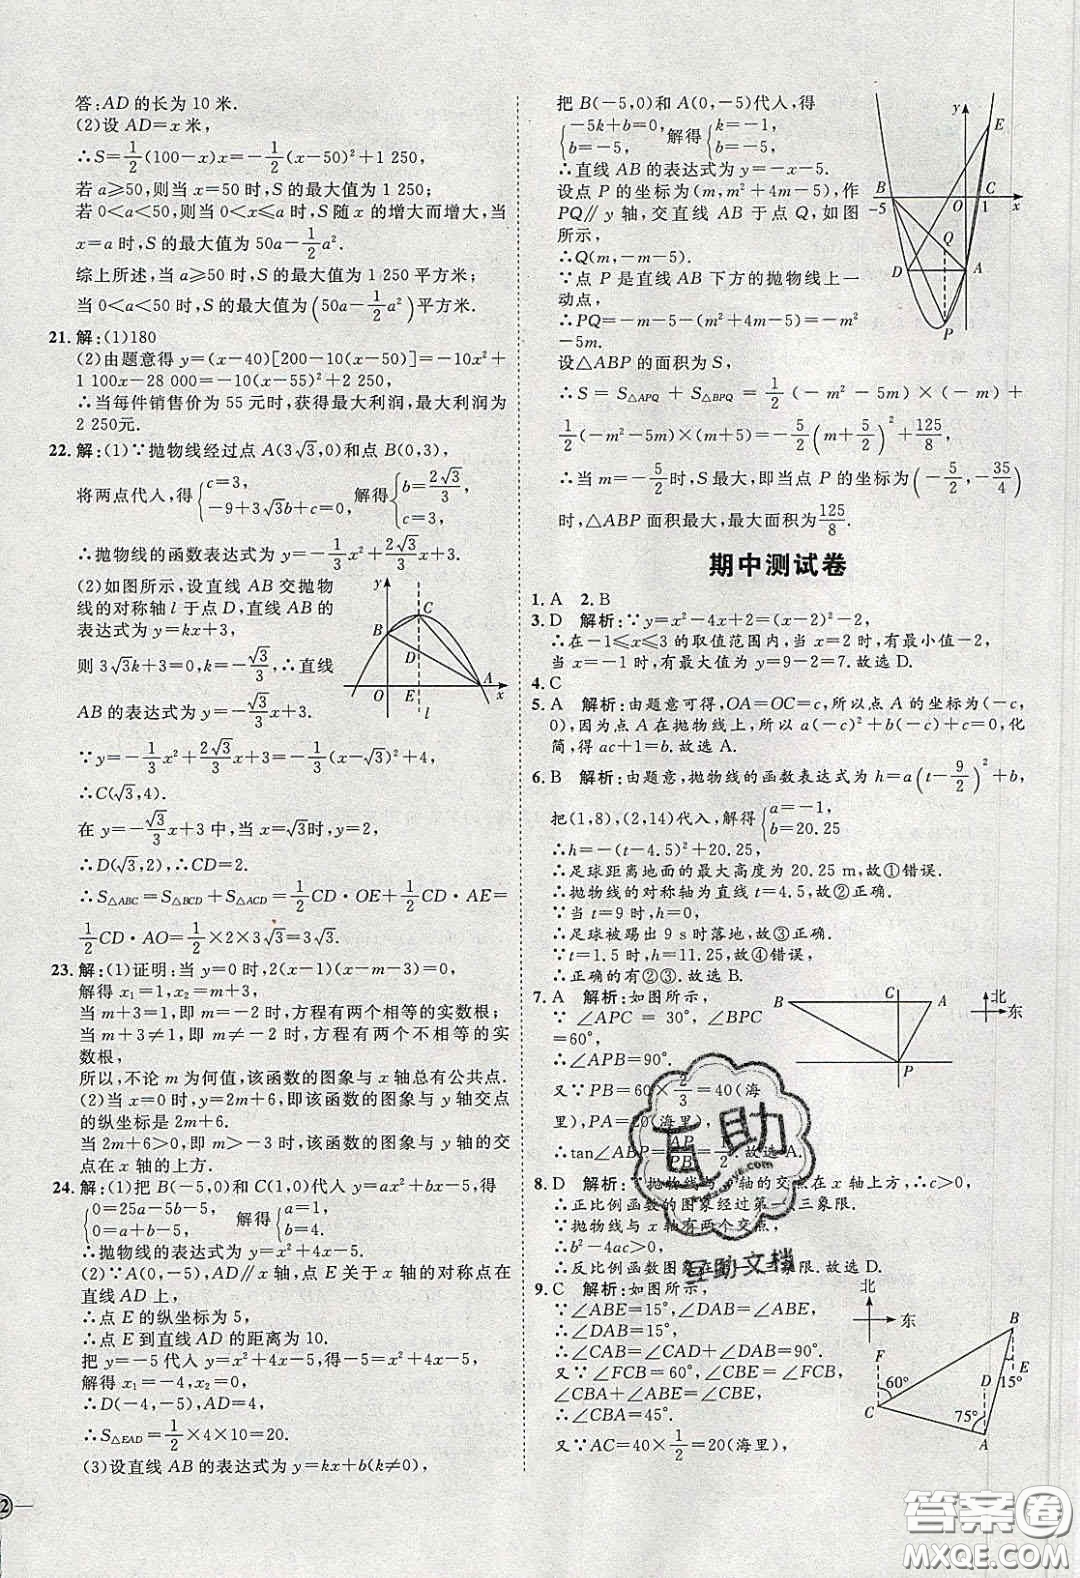 答:AD的长为10米.
(2)设AD=x米,
∴S=1/2(100-x)x=-1/2(x-50)²+1 250,
若a≥50,则当x=50时,S的最大值为1 250;
若0<a<50,则当0<x≤a时,S随x的增大而增大,当
x=a时,S的最大值为50a-1/2a².
综上所述,当a≥50时,S的最大值为1 250平方米;
当0<a<50时,S的最大值为(50a-1/2a²)平方米.
21.解:(1)180
(2)由题意得y=(x-40)[200-10(x-50)]=-10x²+
1 100x-28 000=-10(x-55)²+2 250,
∴当每件销售价为55元时,获得最大利润,最大利润为
2 250元.
22.解:(1)∵抛物线经过点A(3√3,0)和点B(0,3),
将两点代人,得{c=3, -9+3√3b+c=0, 解得{b=2√3/3, c=3,
∴抛物线的函数表达式为y=-1/3x²+2√3/3x+3.
(2)如图所示,设直线AB交抛物
线的对称轴l于点D,直线AB的
表达式为y=kx+3,
则3√3k+3=0,k=-√3/3,∴直线
AB的表达式为y=-√3/3x+3.
∵y=-1/3x²+2√3/3x+3=-1/3(x-√3)²+4,
∴C(√3,4).
在y=-√3/3x+3中,当x=√3时,y=2,
∴D(√3,2),∴CD=2.
∴S△ABC=S△BCD+S△ACD=1/2CD·OE+1/2CD·AE=
1/2CD·AO=1/2×2×3√3=3√3.
y
C
B
D
A
O
E
x
l
23.解:(1)证明:当y=0时,2(x-1)(x-m-3)=0,
解得x₁=1,x₂=m+3,
当m+3=1,即m=-2时,方程有两个相等的实数根;
当m+3≠1,即m≠-2时,方程有两个不相等的实
数根,
所以,不论m为何值,该函数的图象与x轴总有公共点.
(2)当x=0时,y=2m+6,即该函数的图象与y轴交点
的纵坐标是2m+6.
当2m+6>0,即m>-3时,该函数的图象与y轴的交
点在x轴的上方.
24.解:(1)把B(-5,0)和C(1,0)代人y=ax²+bx-5,得
{0=25a-5b-5, 0=a+b-5, 解得{a=1, b=4.
∴抛物线的表达式为y=x²+4x-5.
(2)∵A(0,-5),AD∥x轴,点E关于x轴的对称点在
直线AD上,
∴点E的纵坐标为5,
∴点E到直线AD的距离为10.
把y=-5代人y=x²+4x-5,得-5=x²+4x-5,
解得x₁=-4,x₂=0.
∴D(-4,-5),∴AD=4,
∴S△EAD=1/2×4×10=20.
(3)设直线AB的表达式为y=kx+b(k≠0),
2
把B(-5,0)和A(0,-5)代人,得
{-5k+b=0, b=-5, 解得{k=-1, b=-5.
∴直线AB的表达式为y=-x-5.
设点P的坐标为(m,m²+4m-5),作
PQ∥y轴,交直线AB于点Q,如图
所示,
∴Q(m,-m-5).
∵点P是直线AB下方的抛物线上一
动点,
∴PQ=-m-5-(m²+4m-5)=-m²
-5m.
设△ABP的面积为S,
∴S=S△APQ+S△BPQ=1/2(-m²-5m)×(-m)+
1/2(-m²-5m)×(m+5)=-5/2(m+5/2)²+125/8,
∴当m=-5/2时,S最大,即当点P的坐标为(-5/2,-35/4)
时,△ABP面积最大,最大面积为125/8.
y
E
B
-5
O
C
1
x
Q
D
A
P
期中测试卷
1.A 2.B
3.D 解析:∵y=x²-4x+2=(x-2)²-2,
∴在-1≤x≤3的取值范围内,当x=2时,有最小值-2,
当x=-1时,有最大值为y=9-2=7.故选D.
4.C
5.A 解析:由题意可得,OA=OC=c,所以点A的坐标为(-c,
0),因为点A在抛物线上,所以a(-c)²+b(-c)+c=0,化
简,得ac+1=b.故选A.
6.B 解析:由题意,抛物线的函数表达式为h=a(t-9/2)²+b,
把(1,8),(2,14)代入,解得{a=-1, b=20.25
∴h=-(t-4.5)²+20.25,
∴足球距离地面的最大高度为20.25 m,故①错误.
∴抛物线的对称轴为直线t=4.5,故②正确.
∵当t=9时,h=0,
∴足球被踢出9 s时落地,故③正确.
∵t=1.5时,h=11.25,故④错误,
∴正确的有②③.故选B.
7.A 解析:如图所示,
∵∠APC=30°,∠BPC
=60°,
∴∠APB=90°.
又∵PB=60×2/3=40(海
里),PA=20(海里),
∴tan∠ABP=AP/PB=1/2.故选A.
B
C
A
P
北
东
8.D 解析:∵抛物线与y轴的交点在x轴上方,∴c>0,
∴正比例函数的图象经过第一、三象限.
∵抛物线与x轴有两个交点,
∴b²-4ac>0,
∴反比例函数图象在第一、三象限.故选D.
9.C 解析:如图所示,
∵∠ABE=15°,∠DAB=∠ABE,
∴∠DAB=15°,
∴∠CAB=∠CAD+∠DAB=90°.
又∵∠FCB=60°,∠CBE=∠FCB,
∠CBA+∠ABE=∠CBE,
∴∠CBA=45°.
又∵AC=40×1/2=20(海里),
北
东
B
F
60°
C
D
E
15°
75°
A
互助
互助文档
答案圈
MXQE.COM